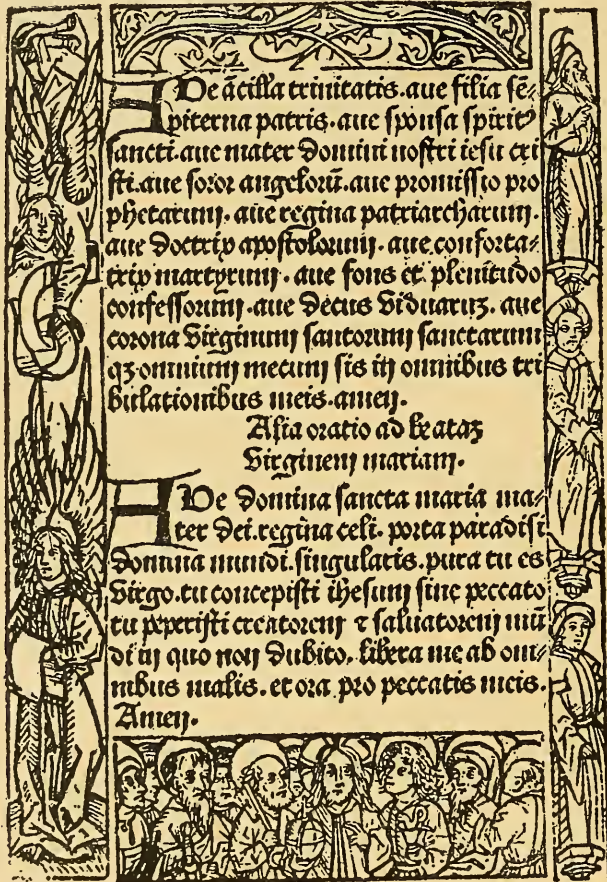 AVe ācilla trinitatis. aue filia sē⸗
piterna patris. aue sponsa spiritꝰ
sancti. aue mater domini nostri iesu cri
sti. aue soror angelorū. aue promissio pro
phetarum. aue regina patriarcharum.
aue doctrix apostolorum. aue conforta⸗
trix martyrum. aue fons et plenitudo
confessorum. aue decus viduaruꝫ. aue
corona virginum santorum sanctarum
qꝫ omnium mecum sis in omnibus tri
bulationibus meis. amen.
Alia oratio ad beataꝫ
virginem mariam.
AVe domina sancta maria ma⸗
ter dei. regina celi. porta paradisi
domina mundi. singularis. pura tu es
virgo. tu concepisti ihesum sine peccato
tu peperisti creatorem ⁊ saluatorem mū
di in quo non dubito. libera me ab om⸗
nibus malis. et ora pro peccatis meis.
Amen.